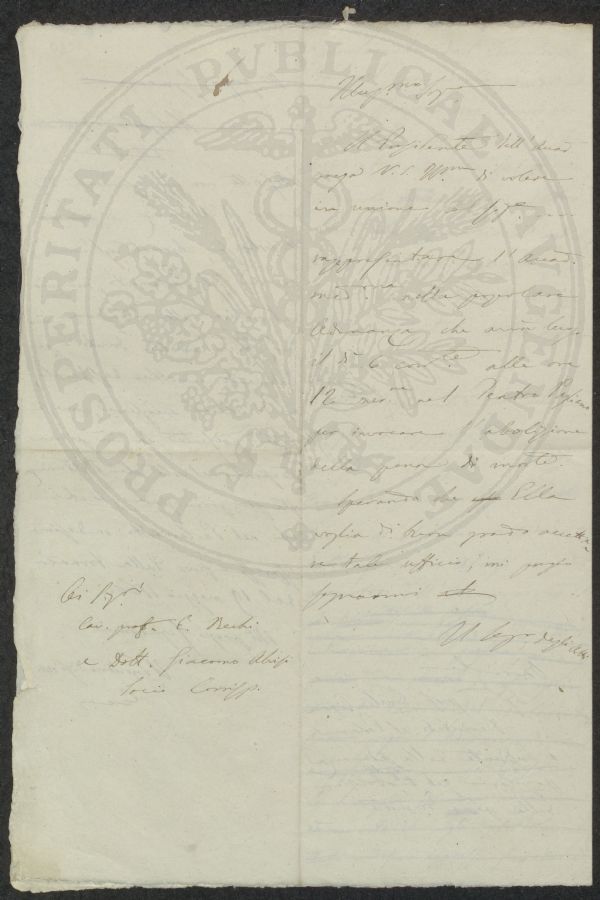 PROSPERITATI PUBLICAE AUGENDAE
Il Presidente dell'Accad.
prega V. S. Ill.ma di volere
in unione al Sig.r
rappresentare l'Accad.
med.ma nella popolare
Adunanza che avrà luo.
il dì 6 corr.te alle ore
12 mer. nel Teatro Pagliano
per invocare l'abolizione
della pena di morte.
Sperando che Ella
voglia di buon grado accetta
re tale ufficio, mi pregio
segnarmi
Il Segr. degli Atti
Ai Sig.ri
Cav. prof. E. Bechi
e Dott. Giacomo
Socio Corrisp.